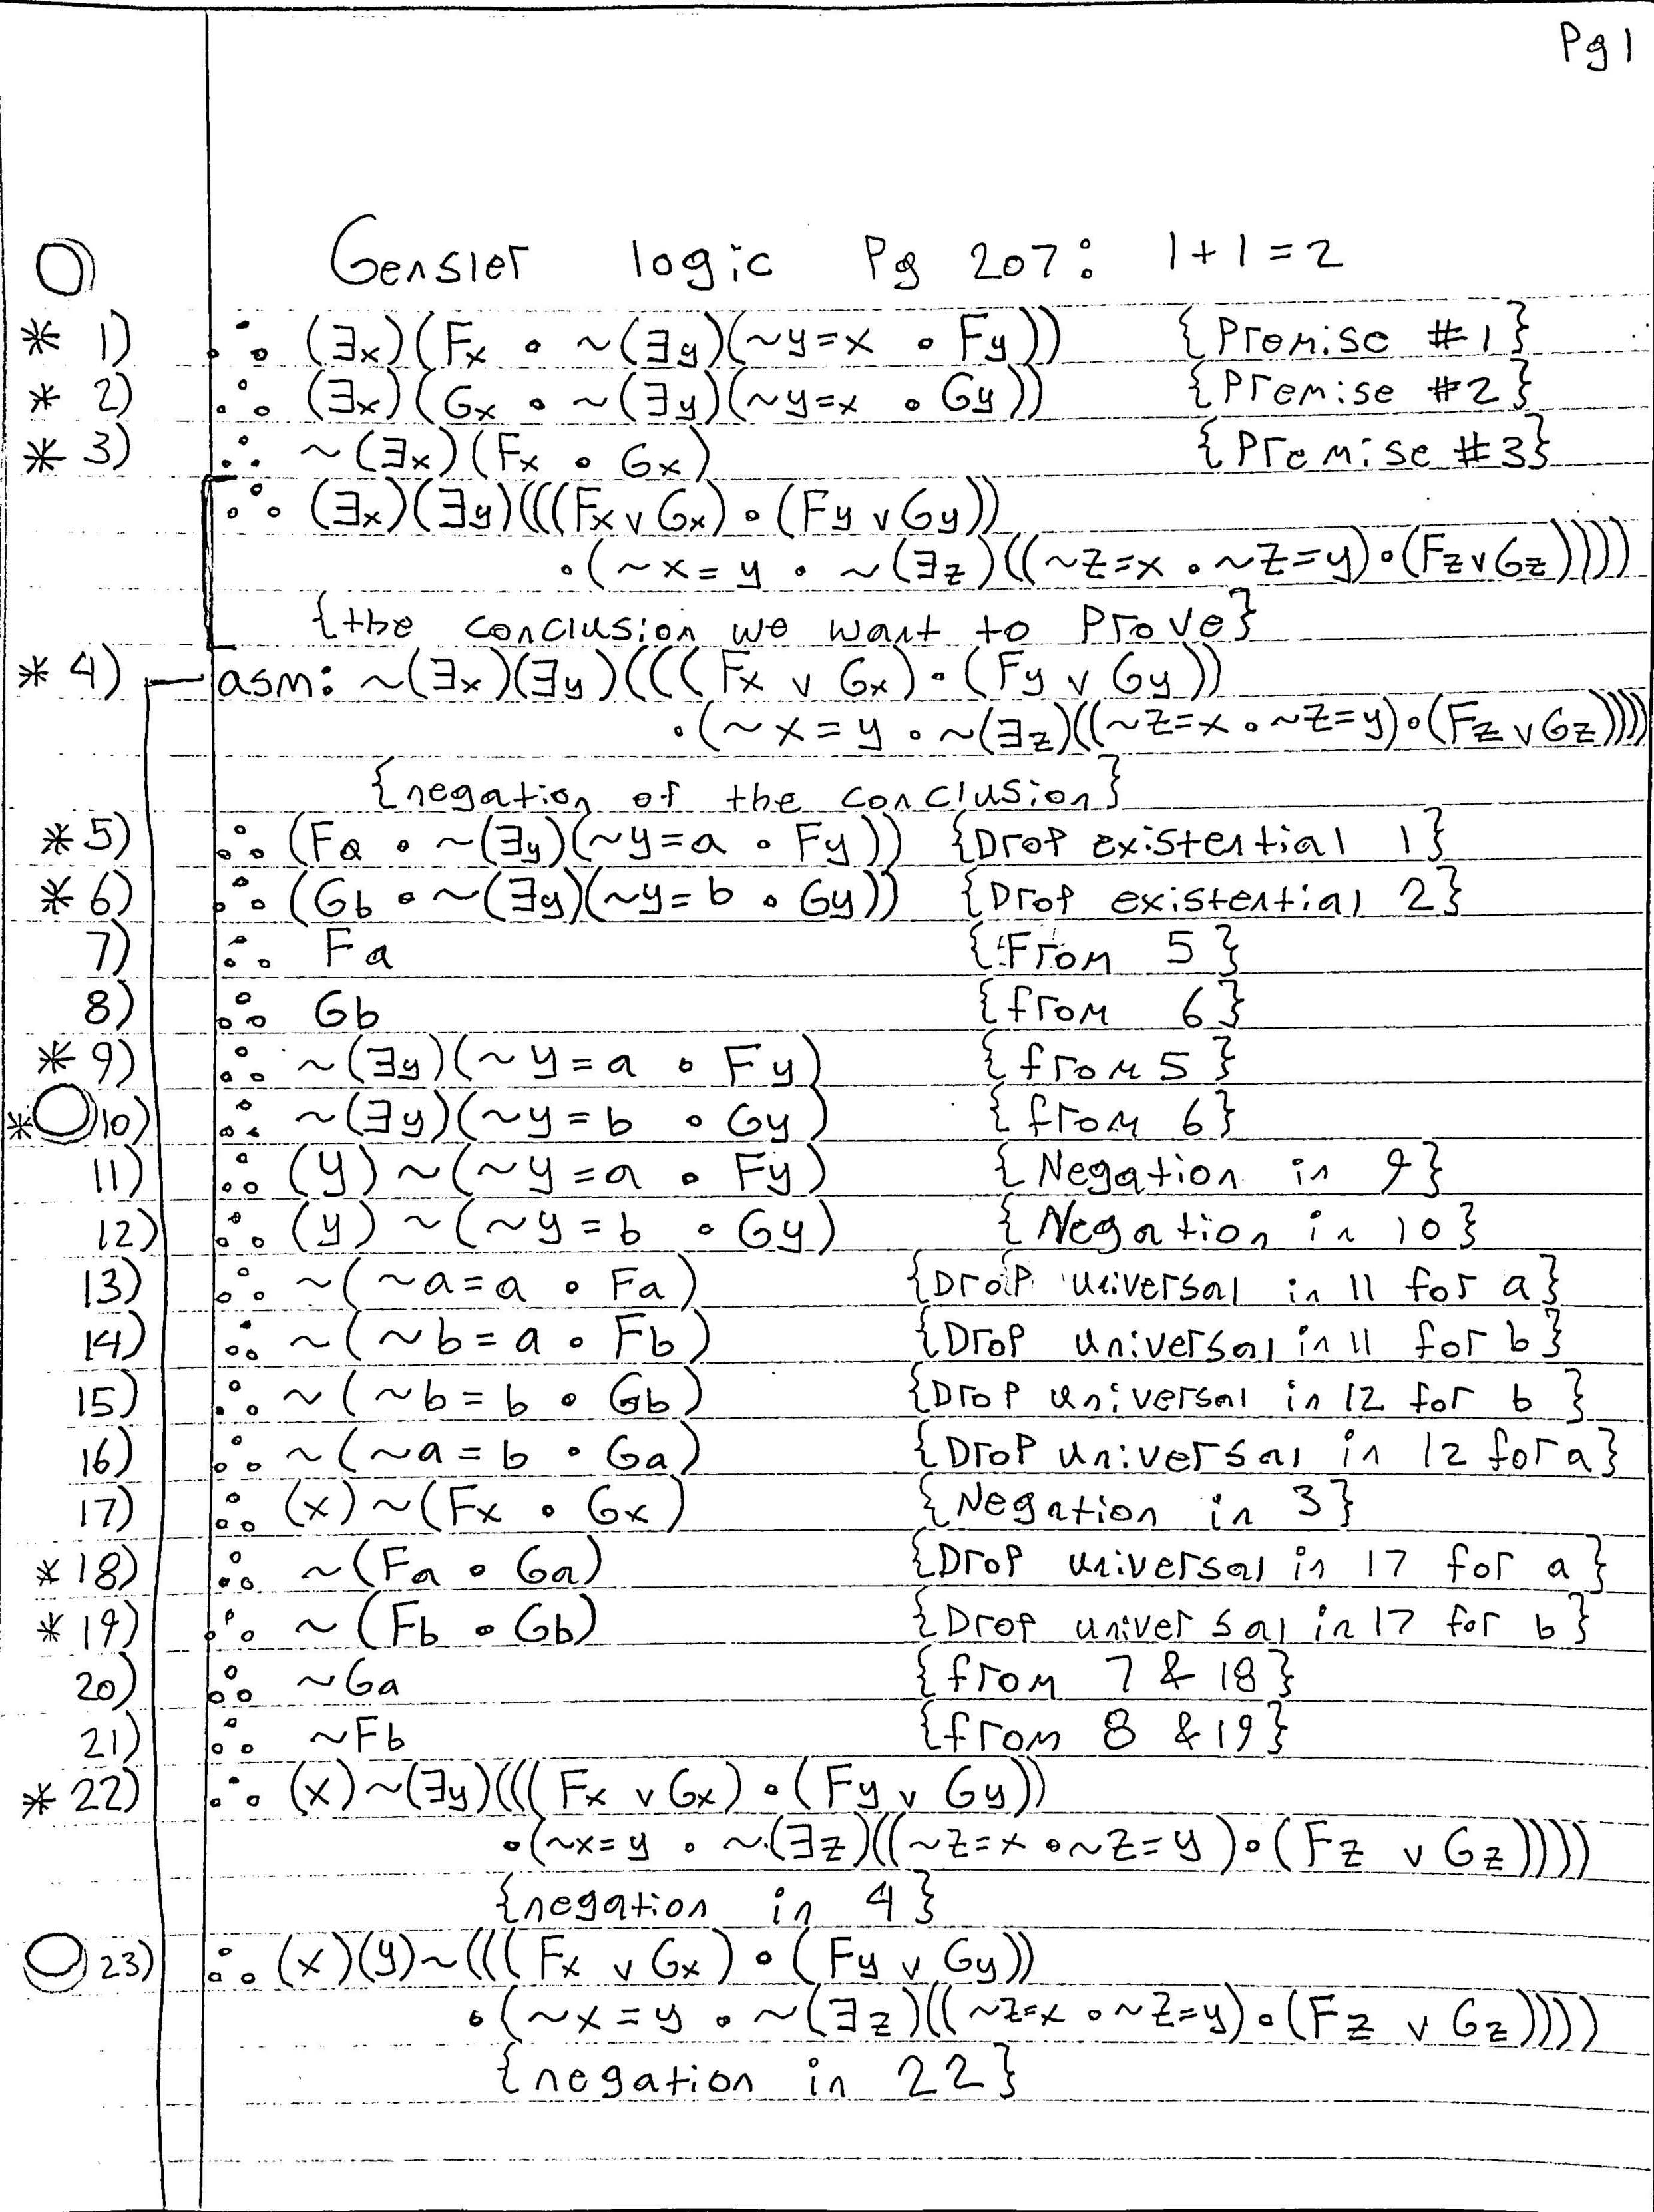 Pg 1
Gensler logic Pg 207: 1+1=2
* 1) ∴ (∃x)(Fx • ~(∃y)(~y=x • Fy)) {Premise #1}
* 2) ∴ (∃x)(Gx • ~(∃y)(~y=x • Gy)) {Premise #2}
* 3) ∴ ~(∃x)(Fx • Gx) {Premise #3}
∴ (∃x)(∃y)(((Fx v Gx) • (Fy v Gy))
• (~x=y • ~(∃z)((~z=x • ~z=y) • (Fz v Gz))))
{the conclusion we want to prove}
* 4) asm: ~(∃x)(∃y)(((Fx v Gx) • (Fy v Gy))
• (~x=y • ~(∃z)((~z=x • ~z=y) • (Fz v Gz))))
{negation of the conclusion}
* 5) ∴ (Fa • ~(∃y)(~y=a • Fy)) {Drop existential 1}
* 6) ∴ (Gb • ~(∃y)(~y=b • Gy)) {Drop existential 2}
7) ∴ Fa {From 5}
8) ∴ Gb {from 6}
* 9) ∴ ~(∃y)(~y=a • Fy) {from 5}
* 10) ∴ ~(∃y)(~y=b • Gy) {from 6}
11) ∴ (y)~(~y=a • Fy) {Negation in 9}
12) ∴ (y)~(~y=b • Gy) {Negation in 10}
13) ∴ ~(~a=a • Fa) {Drop universal in 11 for a}
14) ∴ ~(~b=a • Fb) {Drop universal in 11 for b}
15) ∴ ~(~b=b • Gb) {Drop universal in 12 for b}
16) ∴ ~(~a=b • Ga) {Drop universal in 12 for a}
17) ∴ (x)~(Fx • Gx) {Negation in 3}
* 18) ∴ ~(Fa • Ga) {Drop universal in 17 for a}
* 19) ∴ ~(Fb • Gb) {Drop universal in 17 for b}
20) ∴ ~Ga {from 7 & 18}
21) ∴ ~Fb {from 8 & 19}
* 22) ∴ (x)~(∃y)(((Fx v Gx) • (Fy v Gy))
• (~x=y • ~(∃z)((~z=x • ~z=y) • (Fz v Gz))))
{negation in 4}
23) ∴ (x)(y)~(((Fx v Gx) • (Fy v Gy))
• (~x=y • ~(∃z)((~z=x • ~z=y) • (Fz v Gz))))
{negation in 22}